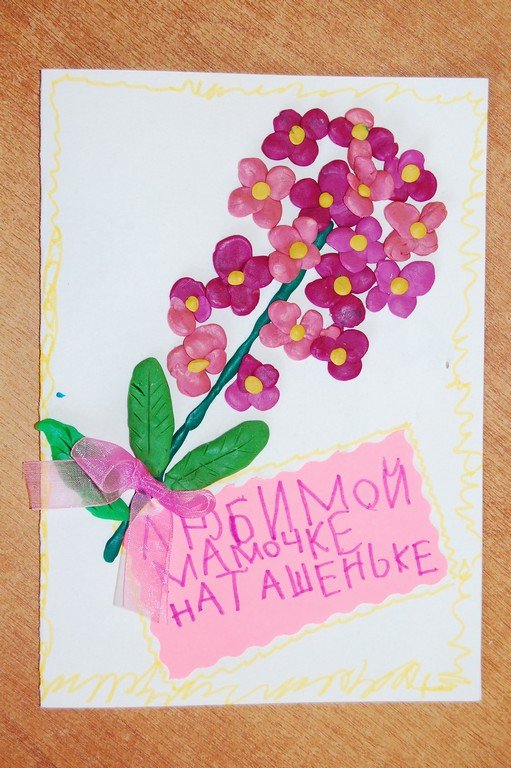 ЛЮБИМОЙ
МАМОЧКЕ
НАТАШЕНЬКЕ